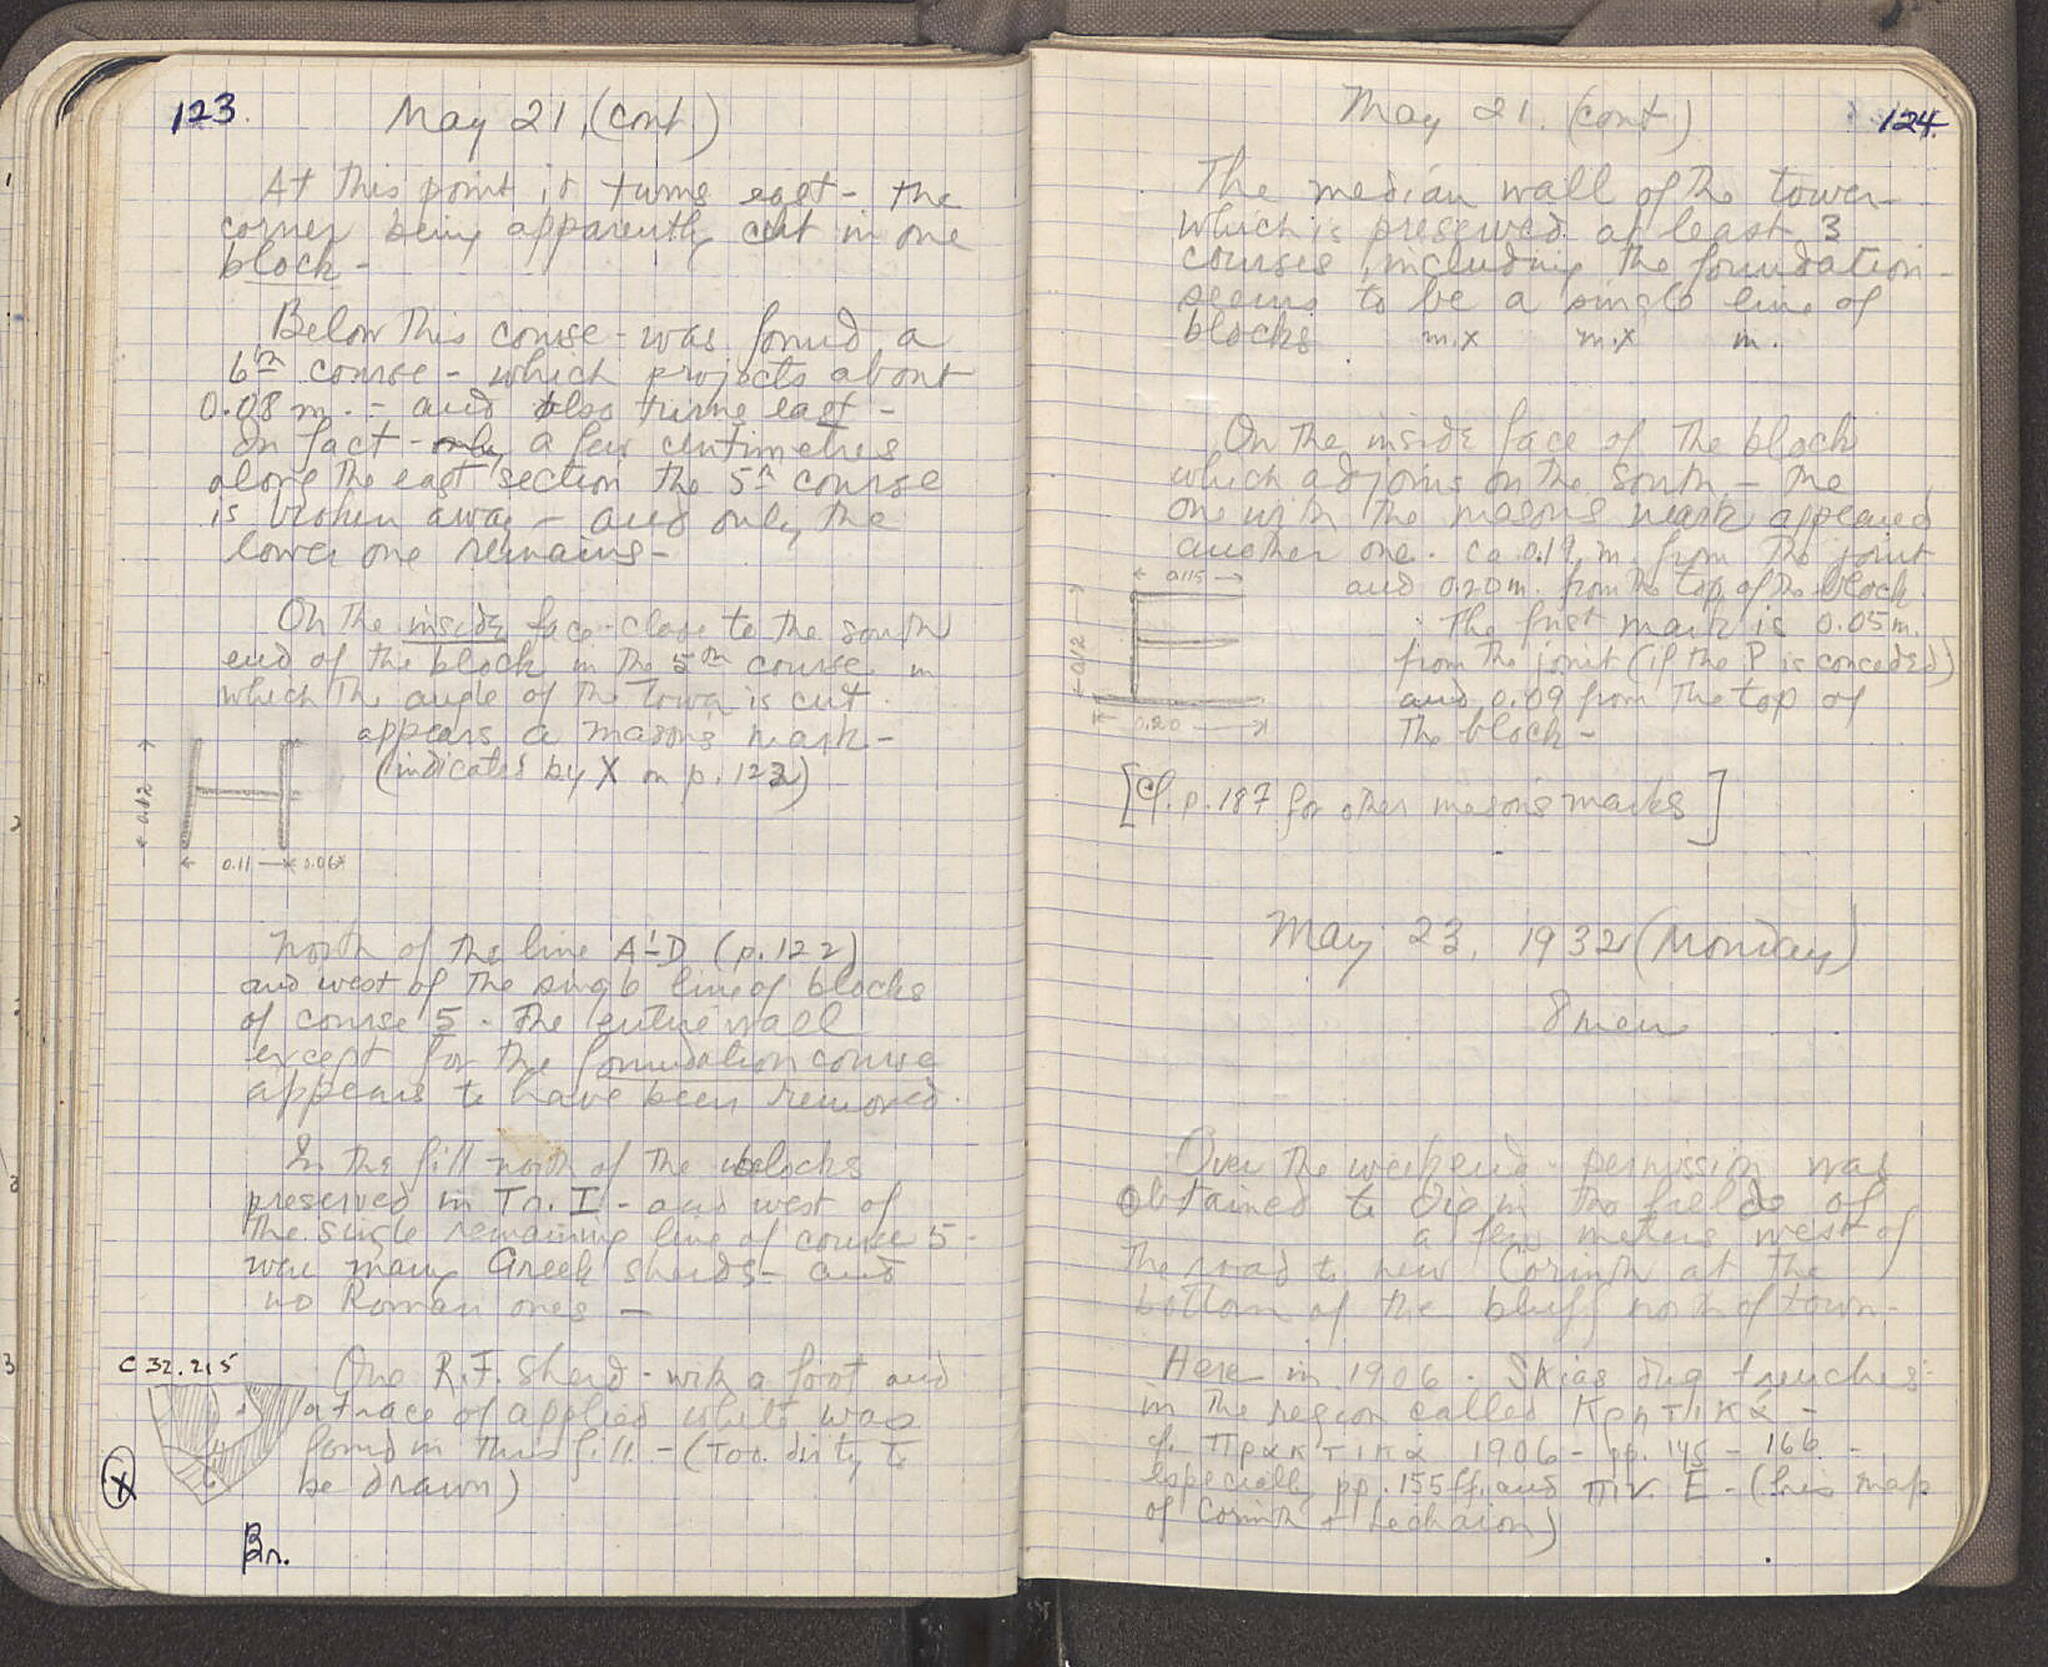 123.
May 21, (cont.)
At this point it turns east - the
corner being apparently cut in one
block -
Below this course - was found a
6th course - which projects about
0.08 m. - and also turns east -
In fact - only a few centimetres
along the east section the 5th course
is broken away - and only the
lower one remains -
On the inside face - close to the south
end of the block in the 5th course in
which the angle of the tower is cut
appears a mason's mark -
(indicated by X on p. 122)
0.12
0.11
0.06
North of the line A'-D (p. 122)
and west of the single line of blocks
of course 5 - the entire wall
except for the foundation course
appears to have been removed.
In the fill north of the blocks
preserved in Tr. I - and west of
the single remaining line of course 5 -
were many Greek sherds - and
no Roman ones -
C 32.215
One R.F. sherd - with a foot and
a trace of applied white was
found in this fill. - (Too dirty to
be drawn)
X
Br.
124.
May 21. (cont)
The median wall of the tower -
which is preserved at least 3
courses, including the foundation -
seems to be a single line of
blocks m. x m. x m.
On the inside face of the block
which adjoins on the south - the
one with the masons mark appeared
another one. ca 0.19 m. from the joint
and 0.20 m. from the top of the block.
0.115
0.12
0.20
The first mark is 0.05 m.
from the joint (if the P is conceded)
and 0.09 from the top of
the block -
[Cf. p. 187 for other masons marks]
May 23, 1932 (Monday)
8 men
Over the weekend - permission was
obtained to dig in the fields of
a few meters west of
the road to new Corinth at the
bottom of the bluff north of town -
Here in 1906 - Skias dug trenches
in the region called Κρητικά -
cf. Πρακτικά 1906 - pp. 145 - 166 -
especially pp. 155 ff. and πιν. Ε - (his map
of Corinth + Lechaion)